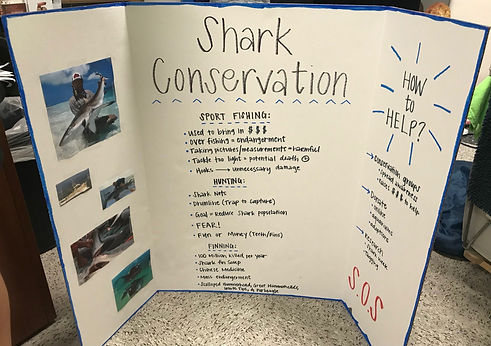 Shark
Conservation
SPORT FISHING:
• Used to bring in $$$
• Over fishing = endangerment
• Taking pictures/measurements = harmful
• Tackle too light = potential death
• Hooks → unnecessary damage
HUNTING:
• Shark Nets
• Drumline (Trap to capture)
• Goal = Reduce Shark population
• FEAR!
• Fun or Money (Teeth/Fins)
FINNING:
• 100 Million killed per year
• Shark fin Soup
• Chinese Medicine
• Mass endangerment
• Scalloped Hammerhead, Great Hammerhead,
HOW
to
HELP?
Conservation groups
Donate
Research
S.O.S